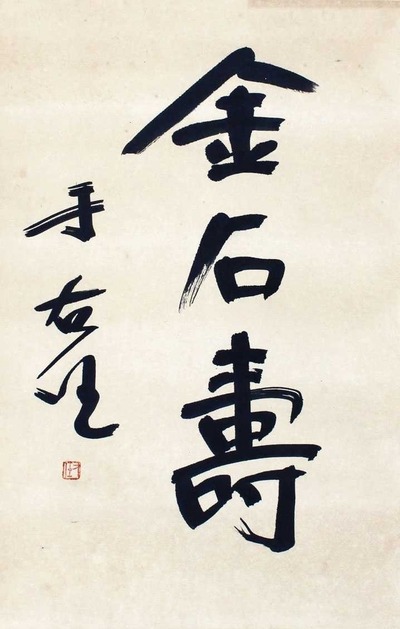 金石壽
于右任